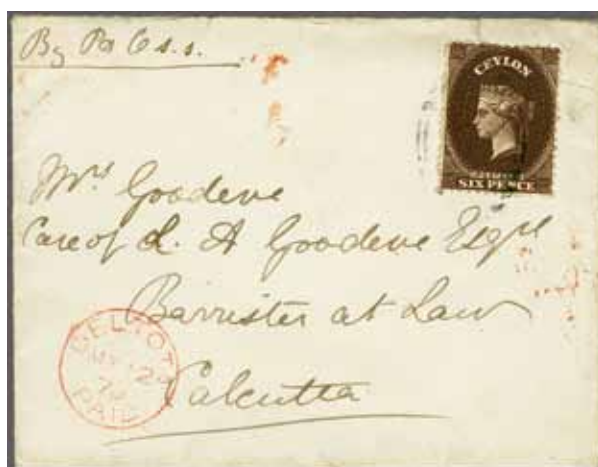 By P& O s.s.
CEYLON
POSTAGE
SIX PENCE
Mrs Goodeve
Care of L. A Goodeve Esqre
Barrister at Law
Calcutta
PAID